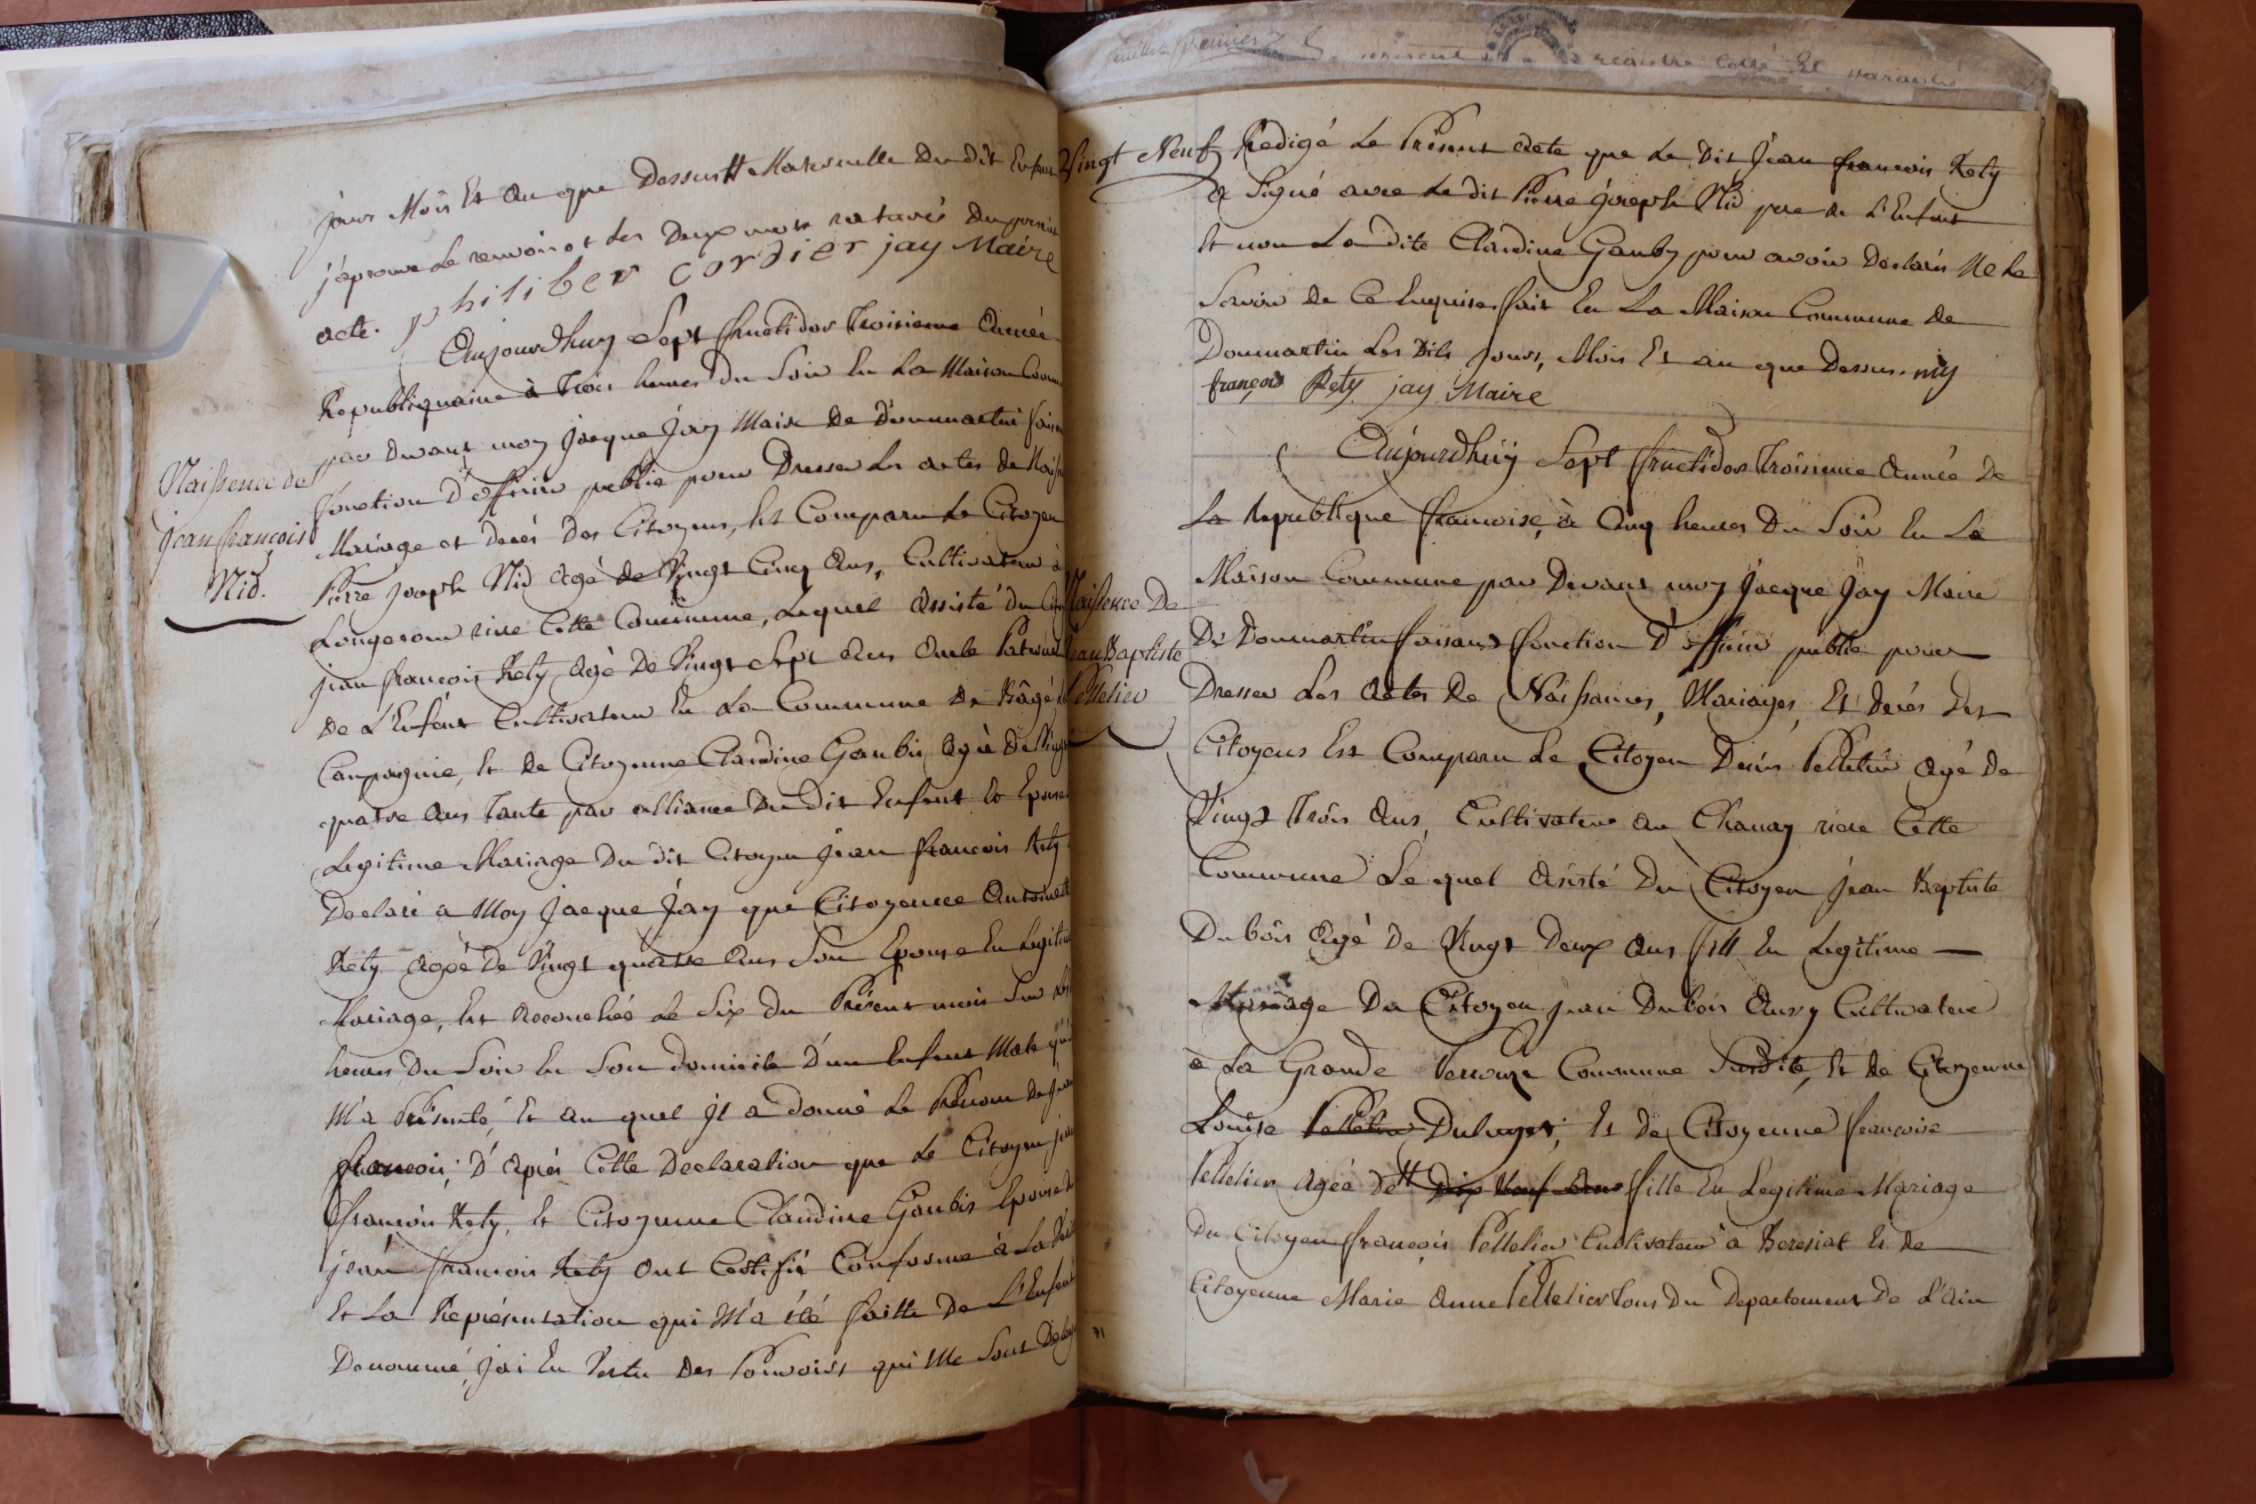 jour Mois Et an que Dessus # Maternelle du dit Enfant
j'aprouve le renvoi et les deux mots ratures du present
acte. philiber cordier jay Maire
Aujourdhuy Sept fructidor Troisieme Année
Republiquaine à trois heures du Soir En La Maison Comm
par devant moy Jacque Jay Maire de Dommartin faisa
fonction D'officier public pour Dresser Les actes de Naiss
Mariage et decés des Citoyens, Est Comparu Le Citoyen
Naissence de
jean francois
Nid.
Pierre Joseph Nid Agé de Vingt Cinq Ans, Cultivateur à
riere Cette Commune, Lequel Assisté du
jean francois Rety Agé De Vingt Sept Ans Oncle Paternel
De L'Enfant Cultivateur En La Commune De Bâgé
Campagnie, Et de Citoyenne Claudine Gaubis Agée De Vingt
quatre Ans Tante par alliance Du Dit Enfant Et Epouse
Legitime Mariage Du dit Citoyen Jean francois Rety
Declaré a Moy Jacque Jay que Citoyenne Antoinett
Rety Agée De Vingt quatre Ans Son Epouse En Legitim
Mariage, Est Accouchée Le Six Du Présent mois Sur
heures Du Soir En Son Domicile D'un Enfant Male qu'il
M'a Présenté, Et au quel Il a donné Le Prénom De Jean
francois; D'après Cette Declaration que Le Citoyen jean
francois Rety, Et Citoyenne Claudine Gaubis Epouse de
jean francois Rety Ont Certifié Conforme à La
Et La Représentation qui M'a été faitte De L'Enfant
Denommé, J'ai En Vertu Des Pouvoirs qui Me Sont
feuillet premier
present registre Cotté Et
Vingt Neuf
Redigé Le Présent Acte que Le Dit Jean francois Rety
a Signé avec Le dit Pierre Joseph Nid pere de L'Enfant
Et non La dite Claudine Gauby pour avoir Declarés Ne Le
Savoir de Ce Enquise. fait En La Maison Commune de
Dommartin Les Dits Jour, Mois Et an que Dessus. niy
françois Rety jay Maire
Aujourdhuy Sept fructidor Troisieme Année De
La Republique francoise, à Cinq heures Du Soir En La
Maison Commune par Devant moy Jacque Jay Maire
Naissence De
Jean Baptiste
Pelletier
De Dommartin faisant fonction D'officier public pour
Dresser Les Actes De Naissances, Mariages, Et Decés Des
Citoyens Est Comparu Le Citoyen Denis Pelletier Agé de
Vingt Trois Ans, Cultivateur Au Chanay riere Cette
Commune Le quel Asisté Du Citoyen jean Baptiste
Dubois Agé De Vingt Deux Ans fill En Legitime
Mariage Du Citoyen jean Dubois Ausy Cultivateur
a La Grande Verrouze Commune Surdite, Et de Citoyenne
Louise Pelletier Duluger; Et De Citoyenne francoise
Pelletier Agéé De # Dix Neuf Ans fille En Legitime Mariage
Du Citoyen francois Pelletier Cultivateur a Beresiat Et De
Citoyenne Marie Anne Pelletier tous Du Departement De L'Ain